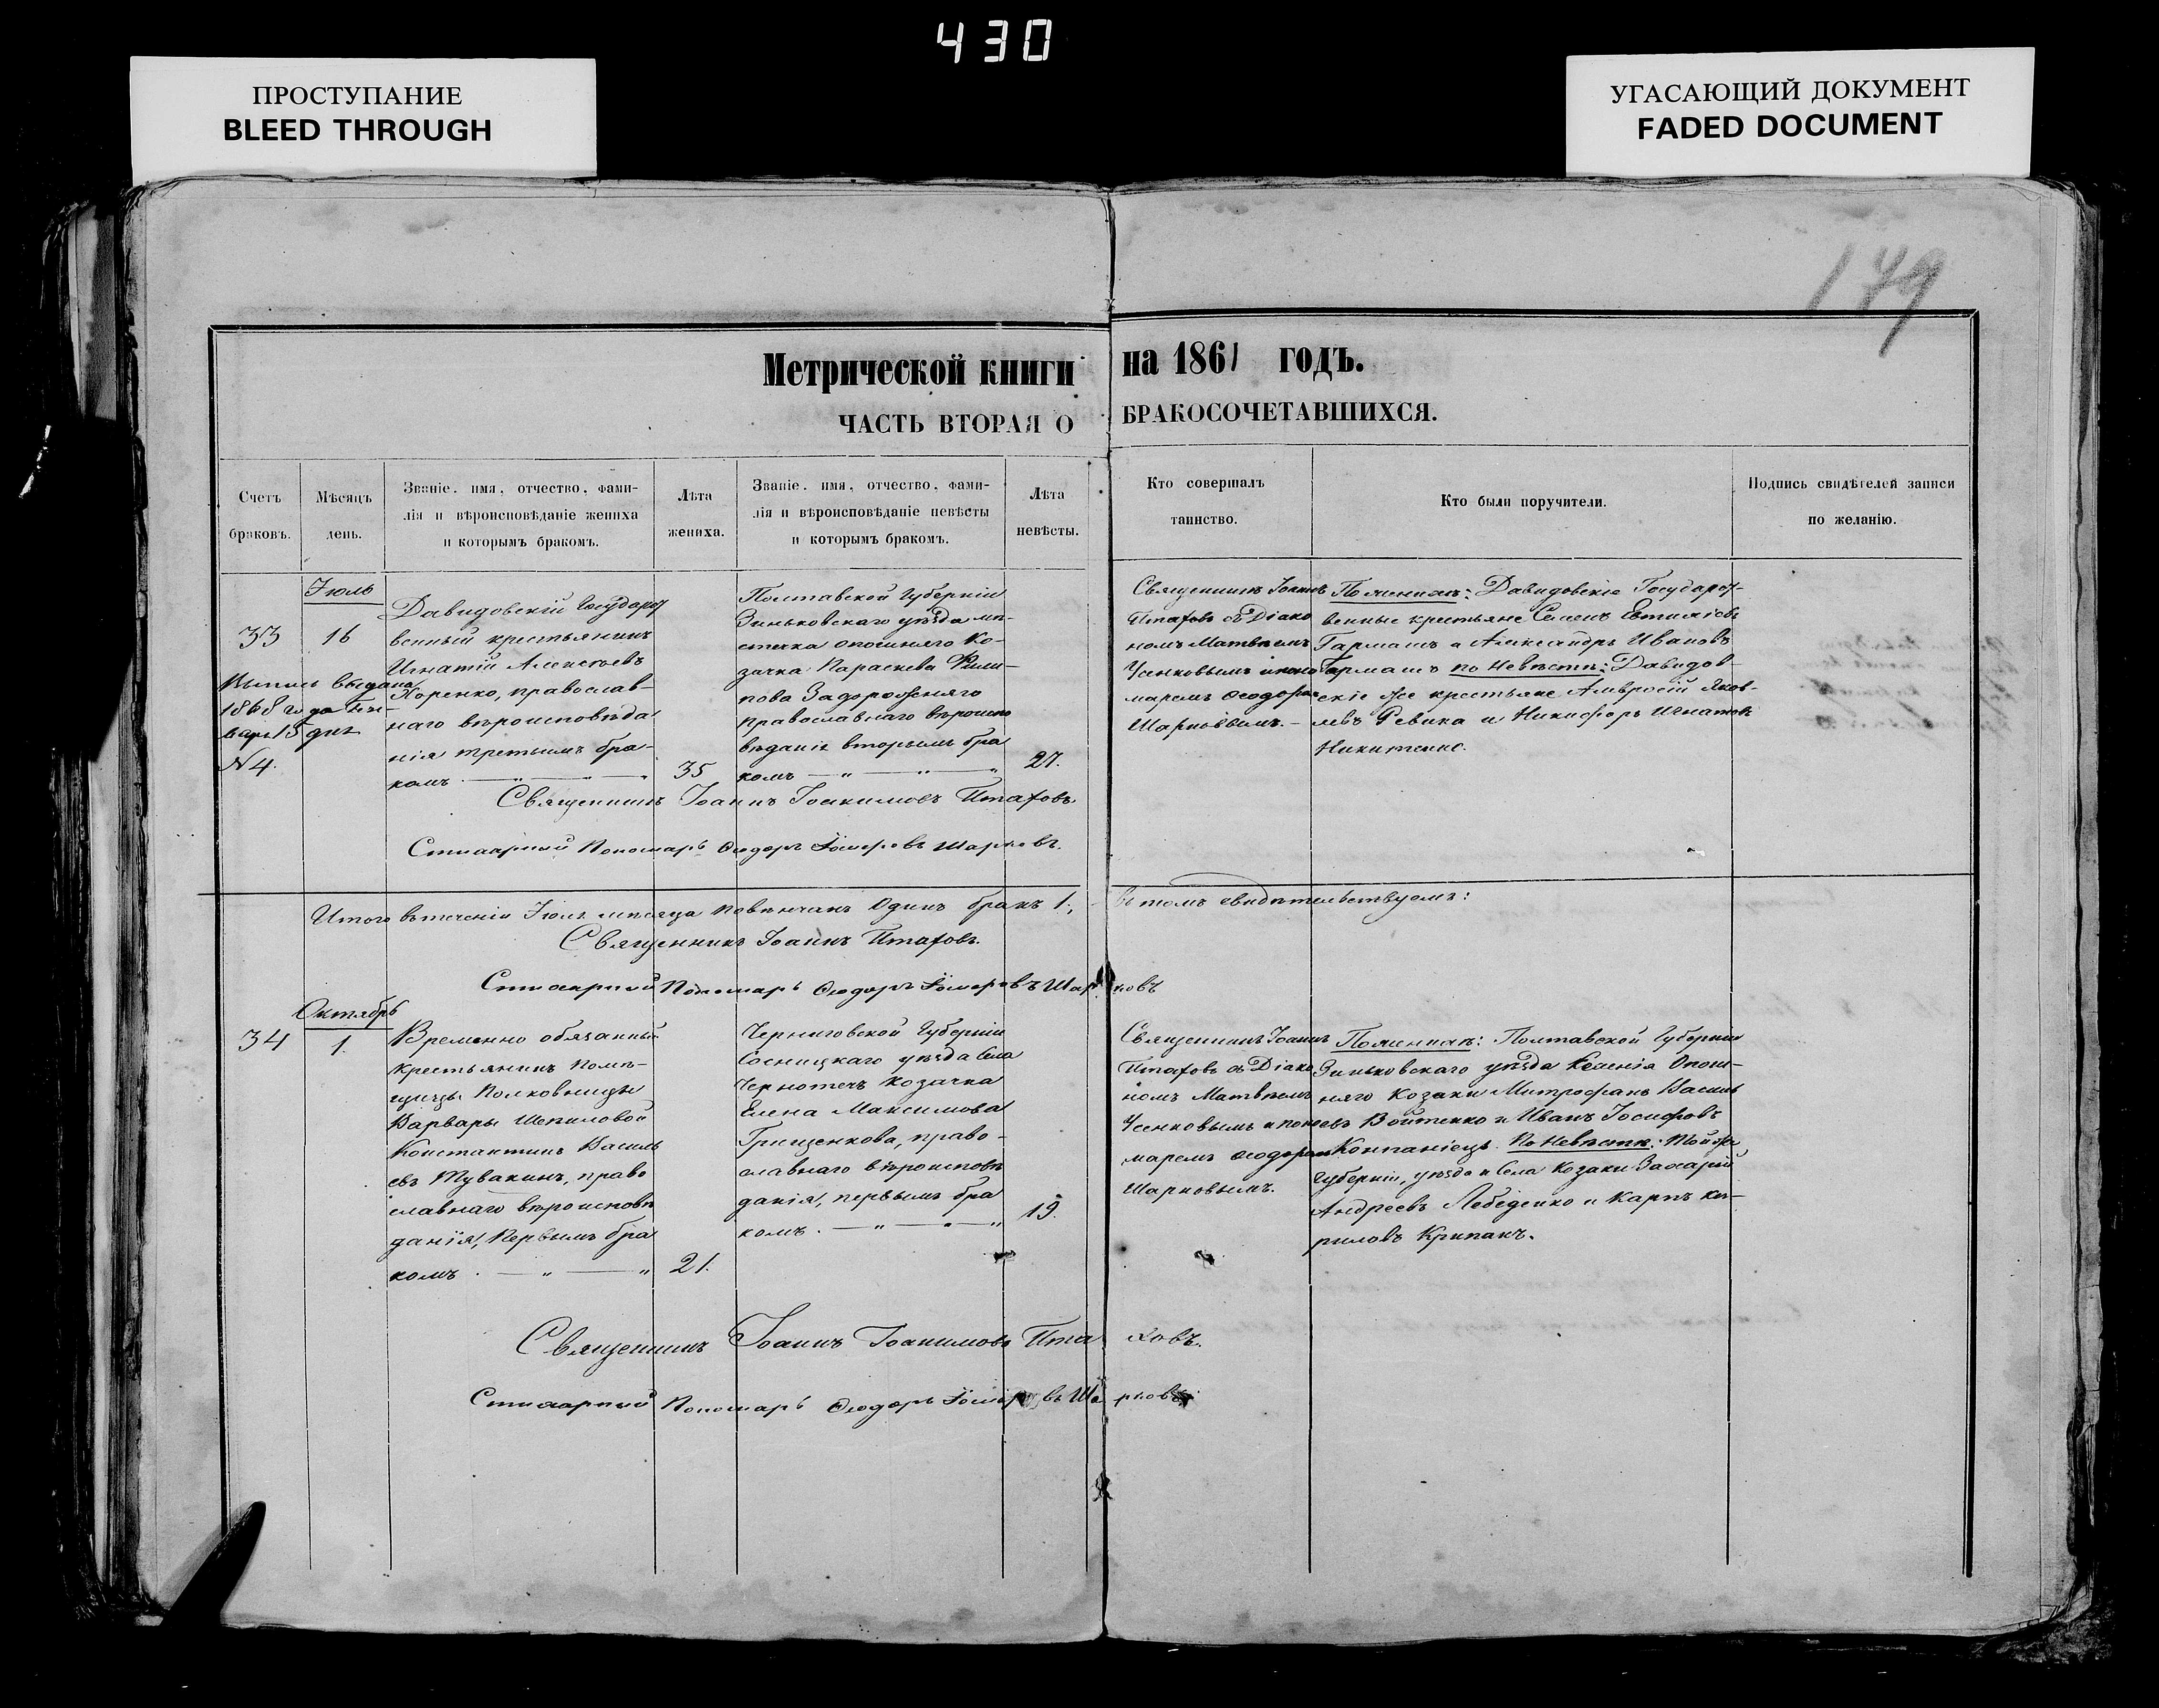 430
ПРОСТУПАНИЕ
BLEED THROUGH
УГАСАЮЩИЙ ДОКУМЕНТ
FADED DOCUMENT
179
Метрической книги на 1861 годъ.
ЧАСТЬ ВТОРАЯ О БРАКОСОЧЕТАВШИХСЯ.
Счетъ
браковъ.
Мѣсяцъ
день.
Званіе, имя, отчество, фами-
лія и вѣроисповѣданіе жениха
и которымъ бракомъ.
Лѣта
жениха.
Званіе, имя, отчество, фами-
лія и вѣроисповѣданіе невѣсты
и которымъ бракомъ.
Лѣта
невѣсты.
Кто совершалъ
таинство.
Кто были поручители.
Подпись свидѣтелей записи
по желанію.
33
Выпись выдана
1868 года
15 дня
№ 4.
Іюль
16
Давидовскій Государст
венный крестьянинъ
Игнатій Алексѣевъ
Хоренко, православ-
наго вѣроисповѣда
нія третьимъ бра-
комъ
35
Полтавской Губерніи
Зиньковскаго уѣзда мѣ-
стечка Опошняго Ко-
зачка Параскева Фили-
пова Задорожняго
православнаго вѣроиспо
вѣданія вторымъ бра
комъ
27.
Священникъ Іоаннъ
Птаховъ съ Діако
номъ Матвѣемъ
Усенковымъ и поно
маремъ Ѳеодоромъ
Шарковымъ.
По женихѣ: Давидовскіе Государст-
венные крестьяне Семенъ Евтихіевъ
Гармашъ и Александръ Ивановъ
Гармашъ по Невѣстѣ: Давидов-
скіе же крестьяне Амвросій Яков-
левъ Ревика и Никифоръ Игнатовъ
Никитенко.
Священникъ Іоаннъ Іоакимовъ Птаховъ.
Стихарный Пономарь Ѳеодоръ Шарковъ.
Итого въ теченіи Іюля мѣсяца повѣнчанъ Одинъ бракъ 1, въ томъ свидѣтельствуемъ:
Священникъ Іоаннъ Птаховъ.
Стихарный Пономарь Ѳеодоръ Шарковъ
34
Октябрь
1.
Временно обязанный
крестьянинъ Помѣ-
щицы Полковницы
Варвары Шепиловой
Константинъ Василь
евъ Тувакинъ, право
славнаго вѣроисповѣ
данія, Первымъ бра
комъ
21.
Черниговской Губерніи
Сосницкаго уѣзда Села
Чернотечъ Козачка
Елена Максимова
Грищенкова, право-
славнаго вѣроисповѣ
данія, первымъ бра
комъ.
19.
Священникъ Іоаннъ
Птаховъ съ Діако
номъ Матвѣемъ
Усенковымъ и поно
маремъ Ѳеодоромъ
Шарковымъ.
По женихѣ: Полтавской Губерніи
Зиньковскаго уѣзда Селенія Опош-
няго Козаки Митрофанъ Василь
евъ Войтенко и Иванъ Іосифовъ
Компаніецъ. По Невѣстѣ: Той же
Губерніи, уѣзда и Села Козаки Захарій
Андреевъ Лебеденко и Карпъ Ки-
риловъ Крипакъ.
Священникъ Іоаннъ Іоакимовъ Птаховъ.
Стихарный Пономарь Ѳеодоръ Шарковъ.